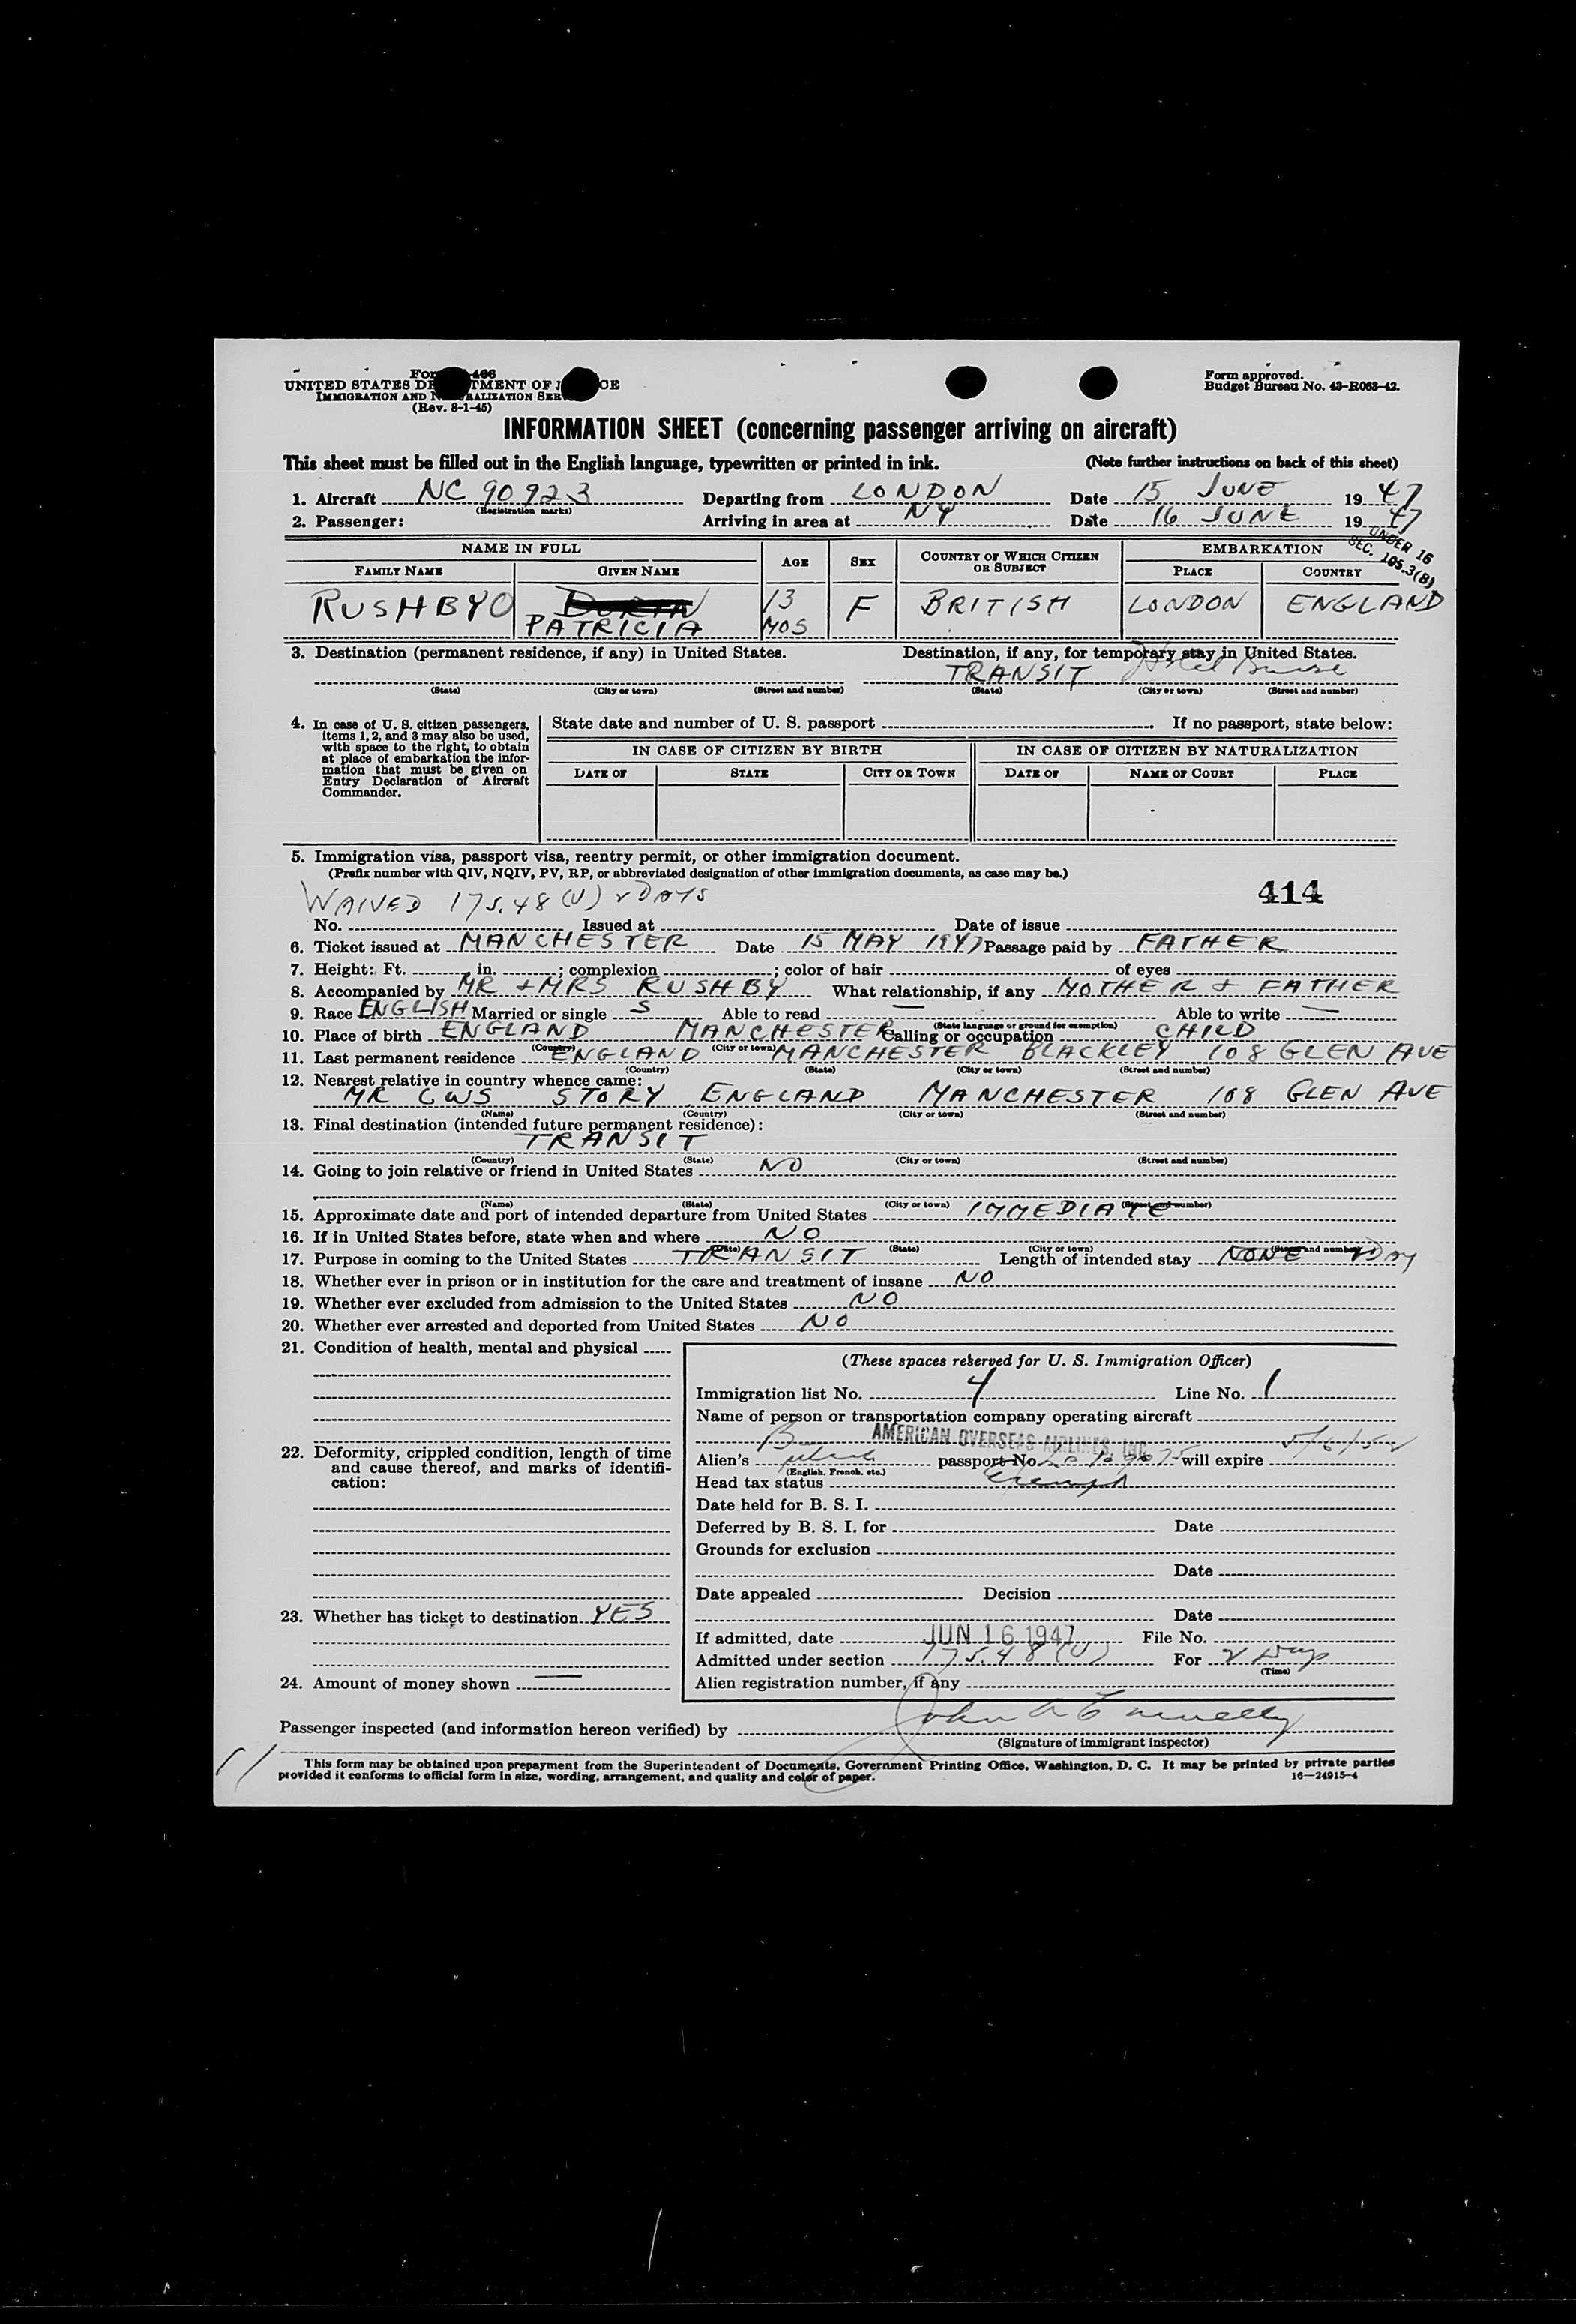 Form 466
UNITED STATES DEPARTMENT OF JUSTICE
IMMIGRATION AND NATURALIZATION SERVICE
(Rev. 8-1-45)
Form approved.
Budget Bureau No. 43-R063-42.
INFORMATION SHEET (concerning passenger arriving on aircraft)
This sheet must be filled out in the English language, typewritten or printed in ink. (Note further instructions on back of this sheet)
1. Aircraft NC 90923 Departing from LONDON Date 15 JUNE 1947
(Registration marks)
2. Passenger: Arriving in area at NY Date 16 JUNE 1947
UNDER 16
SEC. 105.3(B)
NAME IN FULL AGE SEX COUNTRY OF WHICH CITIZEN OR SUBJECT EMBARKATION
FAMILY NAME GIVEN NAME PLACE COUNTRY
RUSHBY PATRICIA 13 MOS F BRITISH LONDON ENGLAND
3. Destination (permanent residence, if any) in United States. Destination, if any, for temporary stay in United States.
TRANSIT
(State) (City or town) (Street and number) (State) (City or town) (Street and number)
4. In case of U. S. citizen passengers, items 1, 2, and 3 may also be used, with space to the right, to obtain at place of embarkation the information that must be given on Entry Declaration of Aircraft Commander.
State date and number of U. S. passport If no passport, state below:
IN CASE OF CITIZEN BY BIRTH IN CASE OF CITIZEN BY NATURALIZATION
DATE OF STATE CITY OR TOWN DATE OF NAME OF COURT PLACE
5. Immigration visa, passport visa, reentry permit, or other immigration document.
(Prefix number with QIV, NQIV, PV, RP, or abbreviated designation of other immigration documents, as case may be.)
WAIVED 175.48 (U) 2 DAYS 414
No. Issued at Date of issue
6. Ticket issued at MANCHESTER Date 15 MAY 1947 Passage paid by FATHER
7. Height: Ft. in. ; complexion ; color of hair of eyes
8. Accompanied by MR + MRS RUSHBY What relationship, if any MOTHER & FATHER
9. Race ENGLISH Married or single S Able to read — Able to write —
(State language or ground for exemption)
10. Place of birth ENGLAND MANCHESTER Calling or occupation CHILD
(Country) (City or town)
11. Last permanent residence ENGLAND MANCHESTER BLACKLEY 108 GLEN AVE
(Country) (State) (City or town) (Street and number)
12. Nearest relative in country whence came:
MR CWS STORY ENGLAND MANCHESTER 108 GLEN AVE
(Name) (Country) (City or town) (Street and number)
13. Final destination (intended future permanent residence):
TRANSIT
(Country) (State) (City or town) (Street and number)
14. Going to join relative or friend in United States NO
(Name) (State) (City or town) (Street and number)
15. Approximate date and port of intended departure from United States IMMEDIATE
16. If in United States before, state when and where NO
(Date) (State) (City or town) (Street and number)
17. Purpose in coming to the United States TRANSIT Length of intended stay NONE 2 Day
18. Whether ever in prison or in institution for the care and treatment of insane NO
19. Whether ever excluded from admission to the United States NO
20. Whether ever arrested and deported from United States NO
21. Condition of health, mental and physical
22. Deformity, crippled condition, length of time and cause thereof, and marks of identification:
23. Whether has ticket to destination YES
24. Amount of money shown —
(These spaces reserved for U. S. Immigration Officer)
Immigration list No. 4 Line No. 1
Name of person or transportation company operating aircraft
AMERICAN OVERSEAS AIRLINES, INC.
Alien's passport No. will expire 5/6/52
(English, French, etc.)
Head tax status exempt
Date held for B. S. I.
Deferred by B. S. I. for Date
Grounds for exclusion
Date
Date appealed Decision
Date
If admitted, date JUN 16 1947 File No.
Admitted under section 175.48 (U) For 2 Days
(Time)
Alien registration number, if any
Passenger inspected (and information hereon verified) by
(Signature of immigrant inspector)
This form may be obtained upon prepayment from the Superintendent of Documents, Government Printing Office, Washington, D. C. It may be printed by private parties
provided it conforms to official form in size, wording, arrangement, and quality and color of paper. 16—24915-4